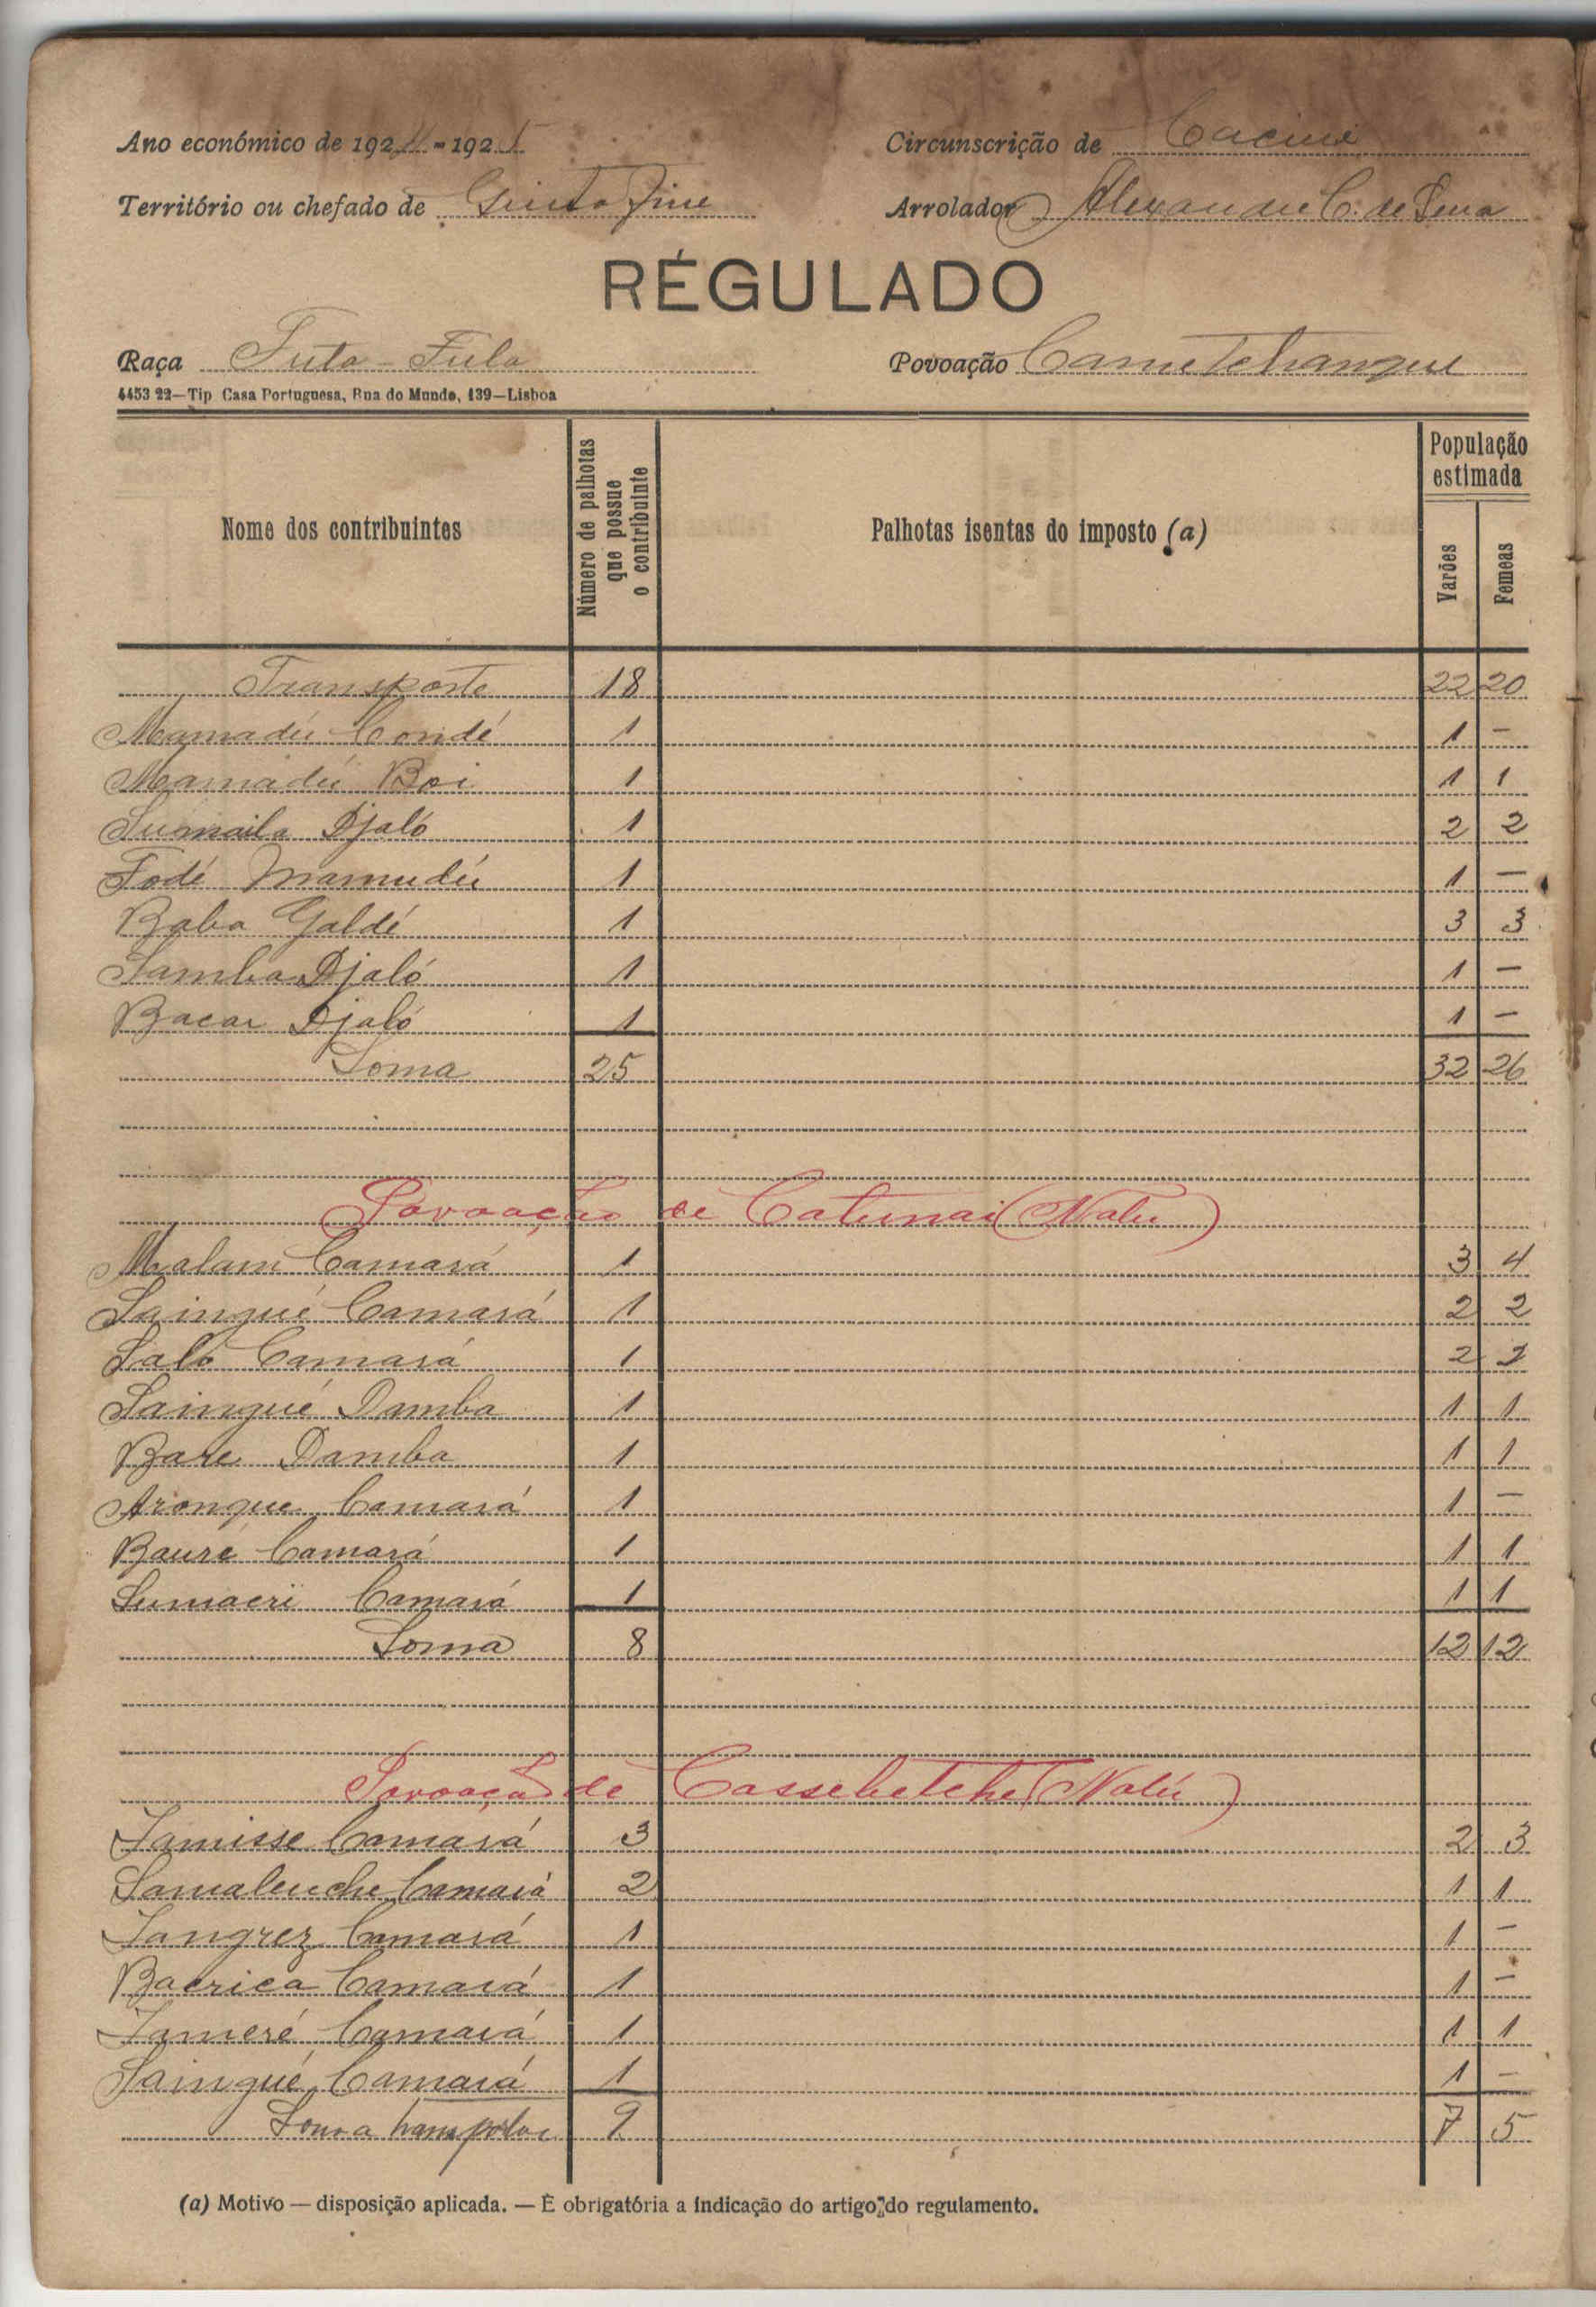 Ano económico de 1924-1925 Circunscrição de Cacine
Território ou chefado de Arrolador Alexandre C. de Sena
RÉGULADO
Raça Futa-Fula Povoação Cametchangue
4453 22—Tip Casa Portuguesa, Rua do Mundo, 139—Lisboa
Nome dos contribuintes Número de palhotas que possue o contribuinte Palhotas isentas do imposto (a) População estimada Varões Femeas
Transporte 18 22 20
Mamadú Condé 1 1 —
Mamadú Boi 1 1 1
Sumaila Djaló 1 2 2
Fodé Mamudú 1 1 —
Baba Galdé 1 3 3
Samba Djaló 1 1 —
Bacar Djaló 1 1 —
Soma 25 32 26
Povoação de Catunai (Nalú)
Malam Camará 1 3 4
Saingué Camará 1 2 2
Saló Camará 1 2 2
Saingué Damba 1 1 1
Bare Damba 1 1 1
Aronque Camará 1 1 —
Bauré Camará 1 1 1
Sumacri Camará 1 1 1
Soma 8 12 12
Povoação de Cassebetche (Nalú)
Tamisse Camará 3 2 3
Samaleuche Camará 2 1 1
Tangrez Camará 1 1 —
Bacrica Camará 1 1 —
Tameré Camará 1 1 1
Saingué Camará 1 1 —
Soma transportar 9 7 5
(a) Motivo — disposição aplicada. — É obrigatória a indicação do artigo do regulamento.